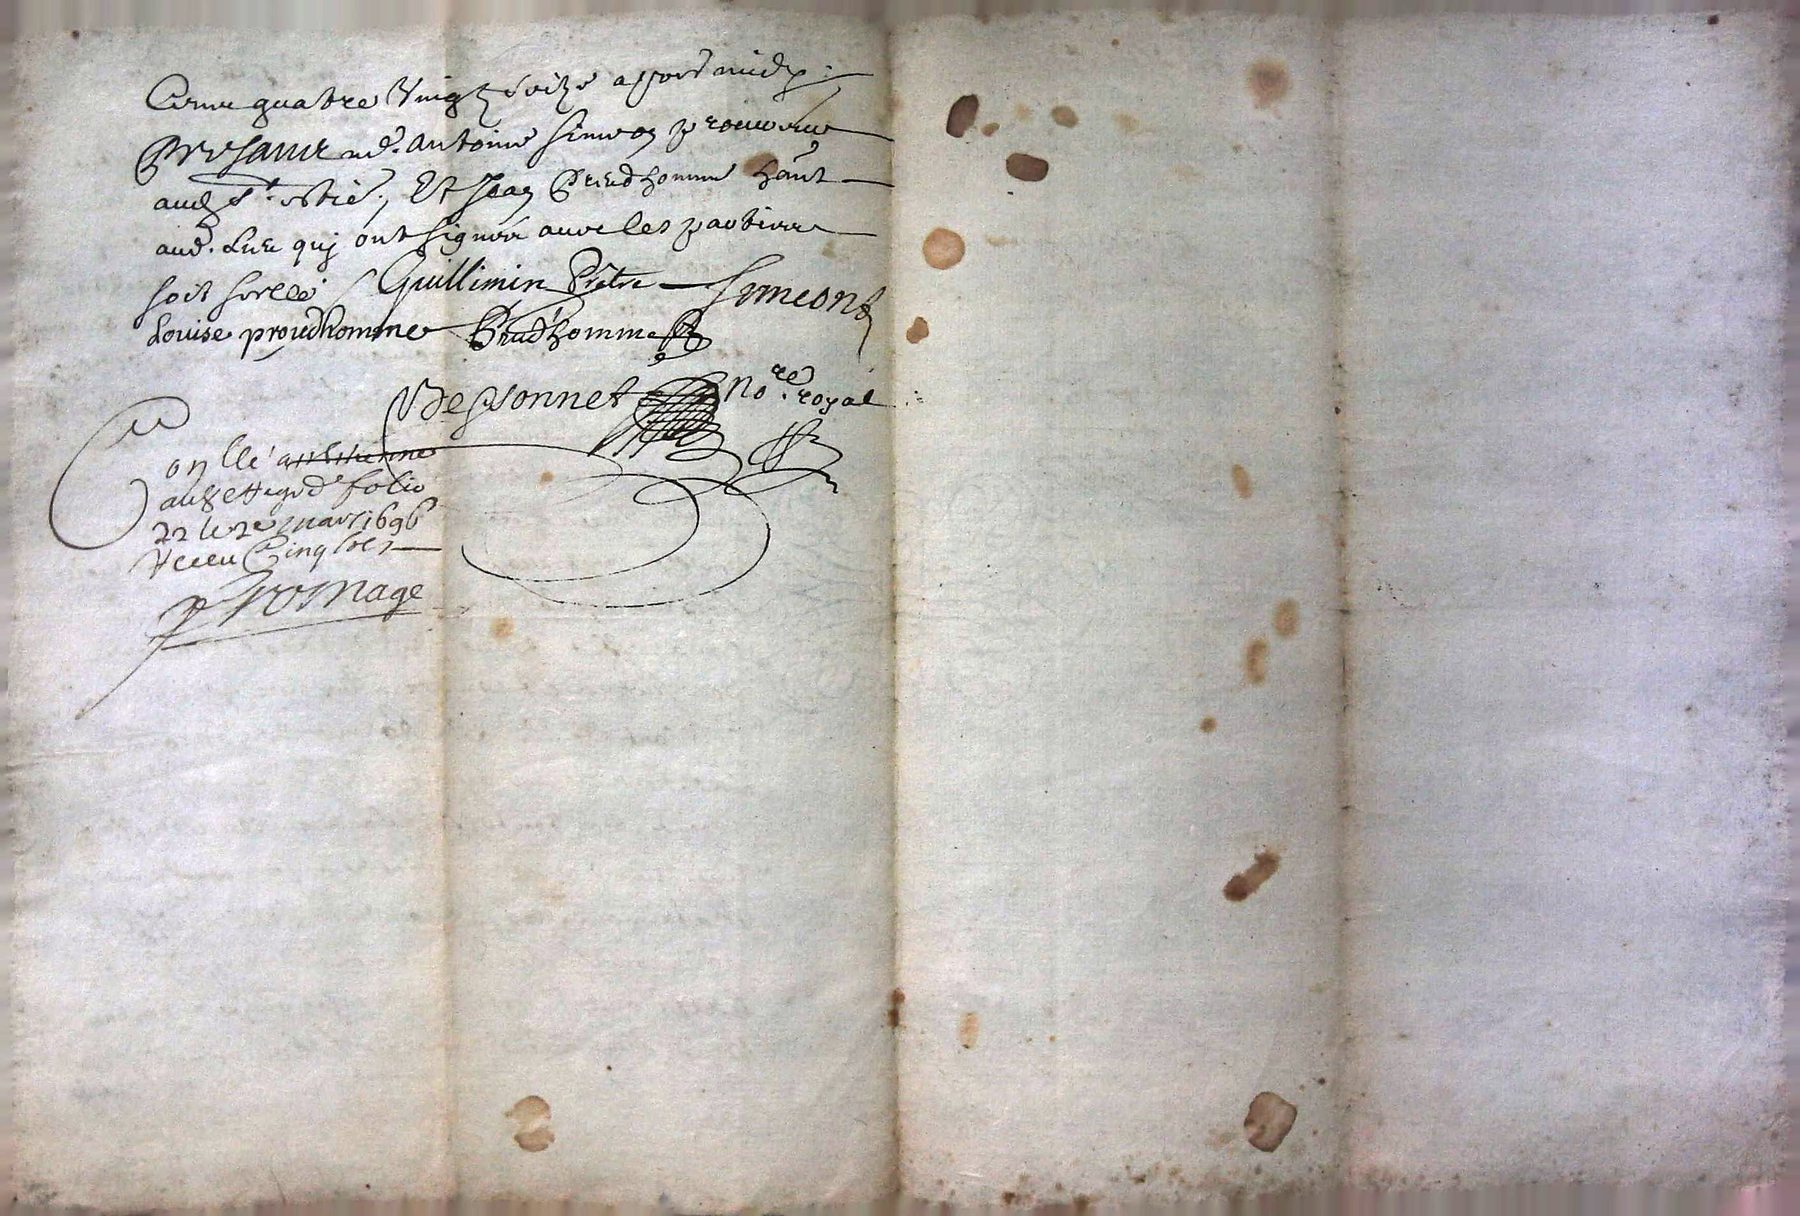 Cens quatre Vingt seize apres midy
Presant md. Antoine Simeon
audt St. , Et Jean Preudhomme
aud. Lieu quy ont signéé avec les partiees
soit scellé Guillimin Prêtre Simeon
Louise proudhomme Prudhomme
Bessonnet Nore. royal
Conllé
au folio
22 le 2e mars 1696
Receu Cinq sols
Fromage